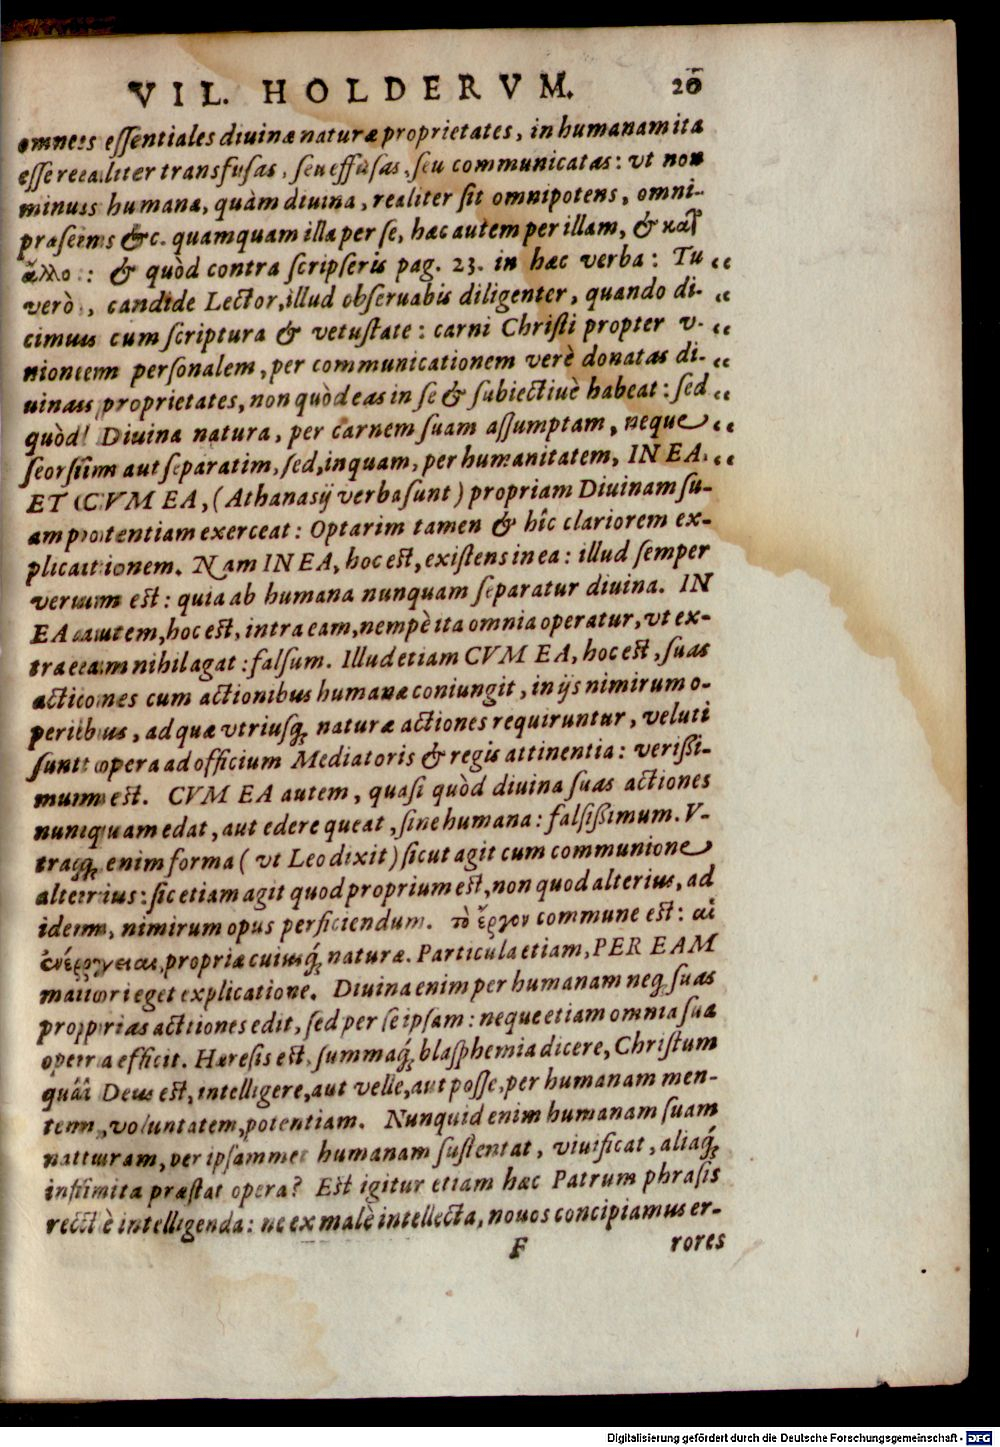 VIL. HOLDERVM. 20
omnes essentiales diuinæ naturæ proprietates, in humanam ita
esse realiter transfusas, seu effusas, seu communicatas: vt non
minus humana, quàm diuina, realiter sit omnipotens, omni-
præsens &c. quamquam illa per se, hæc autem per illam, & κατ
ἄλλο: & quòd contra scripseris pag. 23. in hæc verba: Tu „
verò, candide Lector, illud obseruabis diligenter, quando di- „
cimus cum scriptura & vetustate: carni Christi propter v- „
nionem personalem, per communicationem verè donatas di- „
uinas proprietates, non quòd eas in se & subiectiuè habeat: sed „
quòd Diuina natura, per carnem suam assumptam, neque „
seorsim aut separatim, sed, inquam, per humanitatem, IN EA, „
ET CVM EA, (Athanasij verba sunt) propriam Diuinam su-
am potentiam exerceat: Optarim tamen & hîc clariorem ex-
plicationem. Nam IN EA, hoc est, existens in ea: illud semper
verum est: quia ab humana nunquam separatur diuina. IN
EA autem, hoc est, intra eam, nempè ita omnia operatur, vt ex-
tra eam nihil agat: falsum. Illud etiam CVM EA, hoc est, suas
actiones cum actionibus humanæ coniungit, in ijs nimirum o-
peribus, ad quæ vtriusq; naturæ actiones requiruntur, veluti
sunt opera ad officium Mediatoris & regis attinentia: verißi-
mum est. CVM EA autem, quasi quòd diuina suas actiones
nunquam edat, aut edere queat, sine humana: falsißimum. V-
traq; enim forma (vt Leo dixit) sicut agit cum communione
alterius: sic etiam agit quod proprium est, non quod alterius, ad
idem, nimirum opus perficiendum. τὸ ἔργον commune est: αἱ
ἐνέργειαι, propriæ cuiusq́; naturæ. Particula etiam, PER EAM
maiori eget explicatione. Diuina enim per humanam neq; suas
proprias actiones edit, sed per se ipsam: neque etiam omnia sua
opera efficit. Hæresis est, summaq́; blasphemia dicere, Christum
quâ Deus est, intelligere, aut velle, aut posse, per humanam men-
tem, voluntatem, potentiam. Nunquid enim humanam suam
naturam, per ipsammet humanam sustentat, viuificat, aliaq́;
infinita præstat opera? Est igitur etiam hæc Patrum phrasis
rectè intelligenda: ne ex malè intellecta, nouos concipiamus er-
F rores
Digitalisierung gefördert durch die Deutsche Forschungsgemeinschaft - DFG